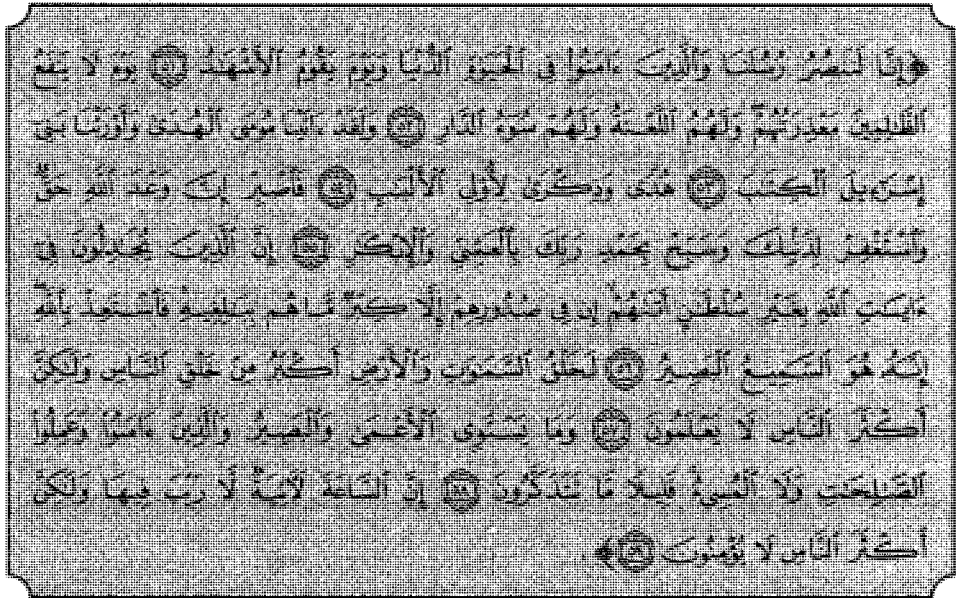 ﴿إِنَّا لَنَنصُرُ رُسُلَنَا وَٱلَّذِينَ ءَامَنُوا۟ فِى ٱلْحَيَوٰةِ ٱلدُّنْيَا وَيَوْمَ يَقُومُ ٱلْأَشْهَـٰدُ ۝٥١ يَوْمَ لَا يَنفَعُ
ٱلظَّـٰلِمِينَ مَعْذِرَتُهُمْ ۖ وَلَهُمُ ٱللَّعْنَةُ وَلَهُمْ سُوٓءُ ٱلدَّارِ ۝٥٢ وَلَقَدْ ءَاتَيْنَا مُوسَى ٱلْهُدَىٰ وَأَوْرَثْنَا بَنِىٓ
إِسْرَٰٓءِيلَ ٱلْكِتَـٰبَ ۝٥٣ هُدًى وَذِكْرَىٰ لِأُو۟لِى ٱلْأَلْبَـٰبِ ۝٥٤ فَٱصْبِرْ إِنَّ وَعْدَ ٱللَّهِ حَقٌّ
وَٱسْتَغْفِرْ لِذَنۢبِكَ وَسَبِّحْ بِحَمْدِ رَبِّكَ بِٱلْعَشِىِّ وَٱلْإِبْكَـٰرِ ۝٥٥ إِنَّ ٱلَّذِينَ يُجَـٰدِلُونَ فِىٓ
ءَايَـٰتِ ٱللَّهِ بِغَيْرِ سُلْطَـٰنٍ أَتَىٰهُمْ ۙ إِن فِى صُدُورِهِمْ إِلَّا كِبْرٌ مَّا هُم بِبَـٰلِغِيهِ ۚ فَٱسْتَعِذْ بِٱللَّهِ ۖ
إِنَّهُۥ هُوَ ٱلسَّمِيعُ ٱلْبَصِيرُ ۝٥٦ لَخَلْقُ ٱلسَّمَـٰوَٰتِ وَٱلْأَرْضِ أَكْبَرُ مِنْ خَلْقِ ٱلنَّاسِ وَلَـٰكِنَّ
أَكْثَرَ ٱلنَّاسِ لَا يَعْلَمُونَ ۝٥٧ وَمَا يَسْتَوِى ٱلْأَعْمَىٰ وَٱلْبَصِيرُ وَٱلَّذِينَ ءَامَنُوا۟ وَعَمِلُوا۟
ٱلصَّـٰلِحَـٰتِ وَلَا ٱلْمُسِىٓءُ ۚ قَلِيلًا مَّا تَتَذَكَّرُونَ ۝٥٨ إِنَّ ٱلسَّاعَةَ لَـَٔاتِيَةٌ لَّا رَيْبَ فِيهَا وَلَـٰكِنَّ
أَكْثَرَ ٱلنَّاسِ لَا يُؤْمِنُونَ ۝٥٩﴾